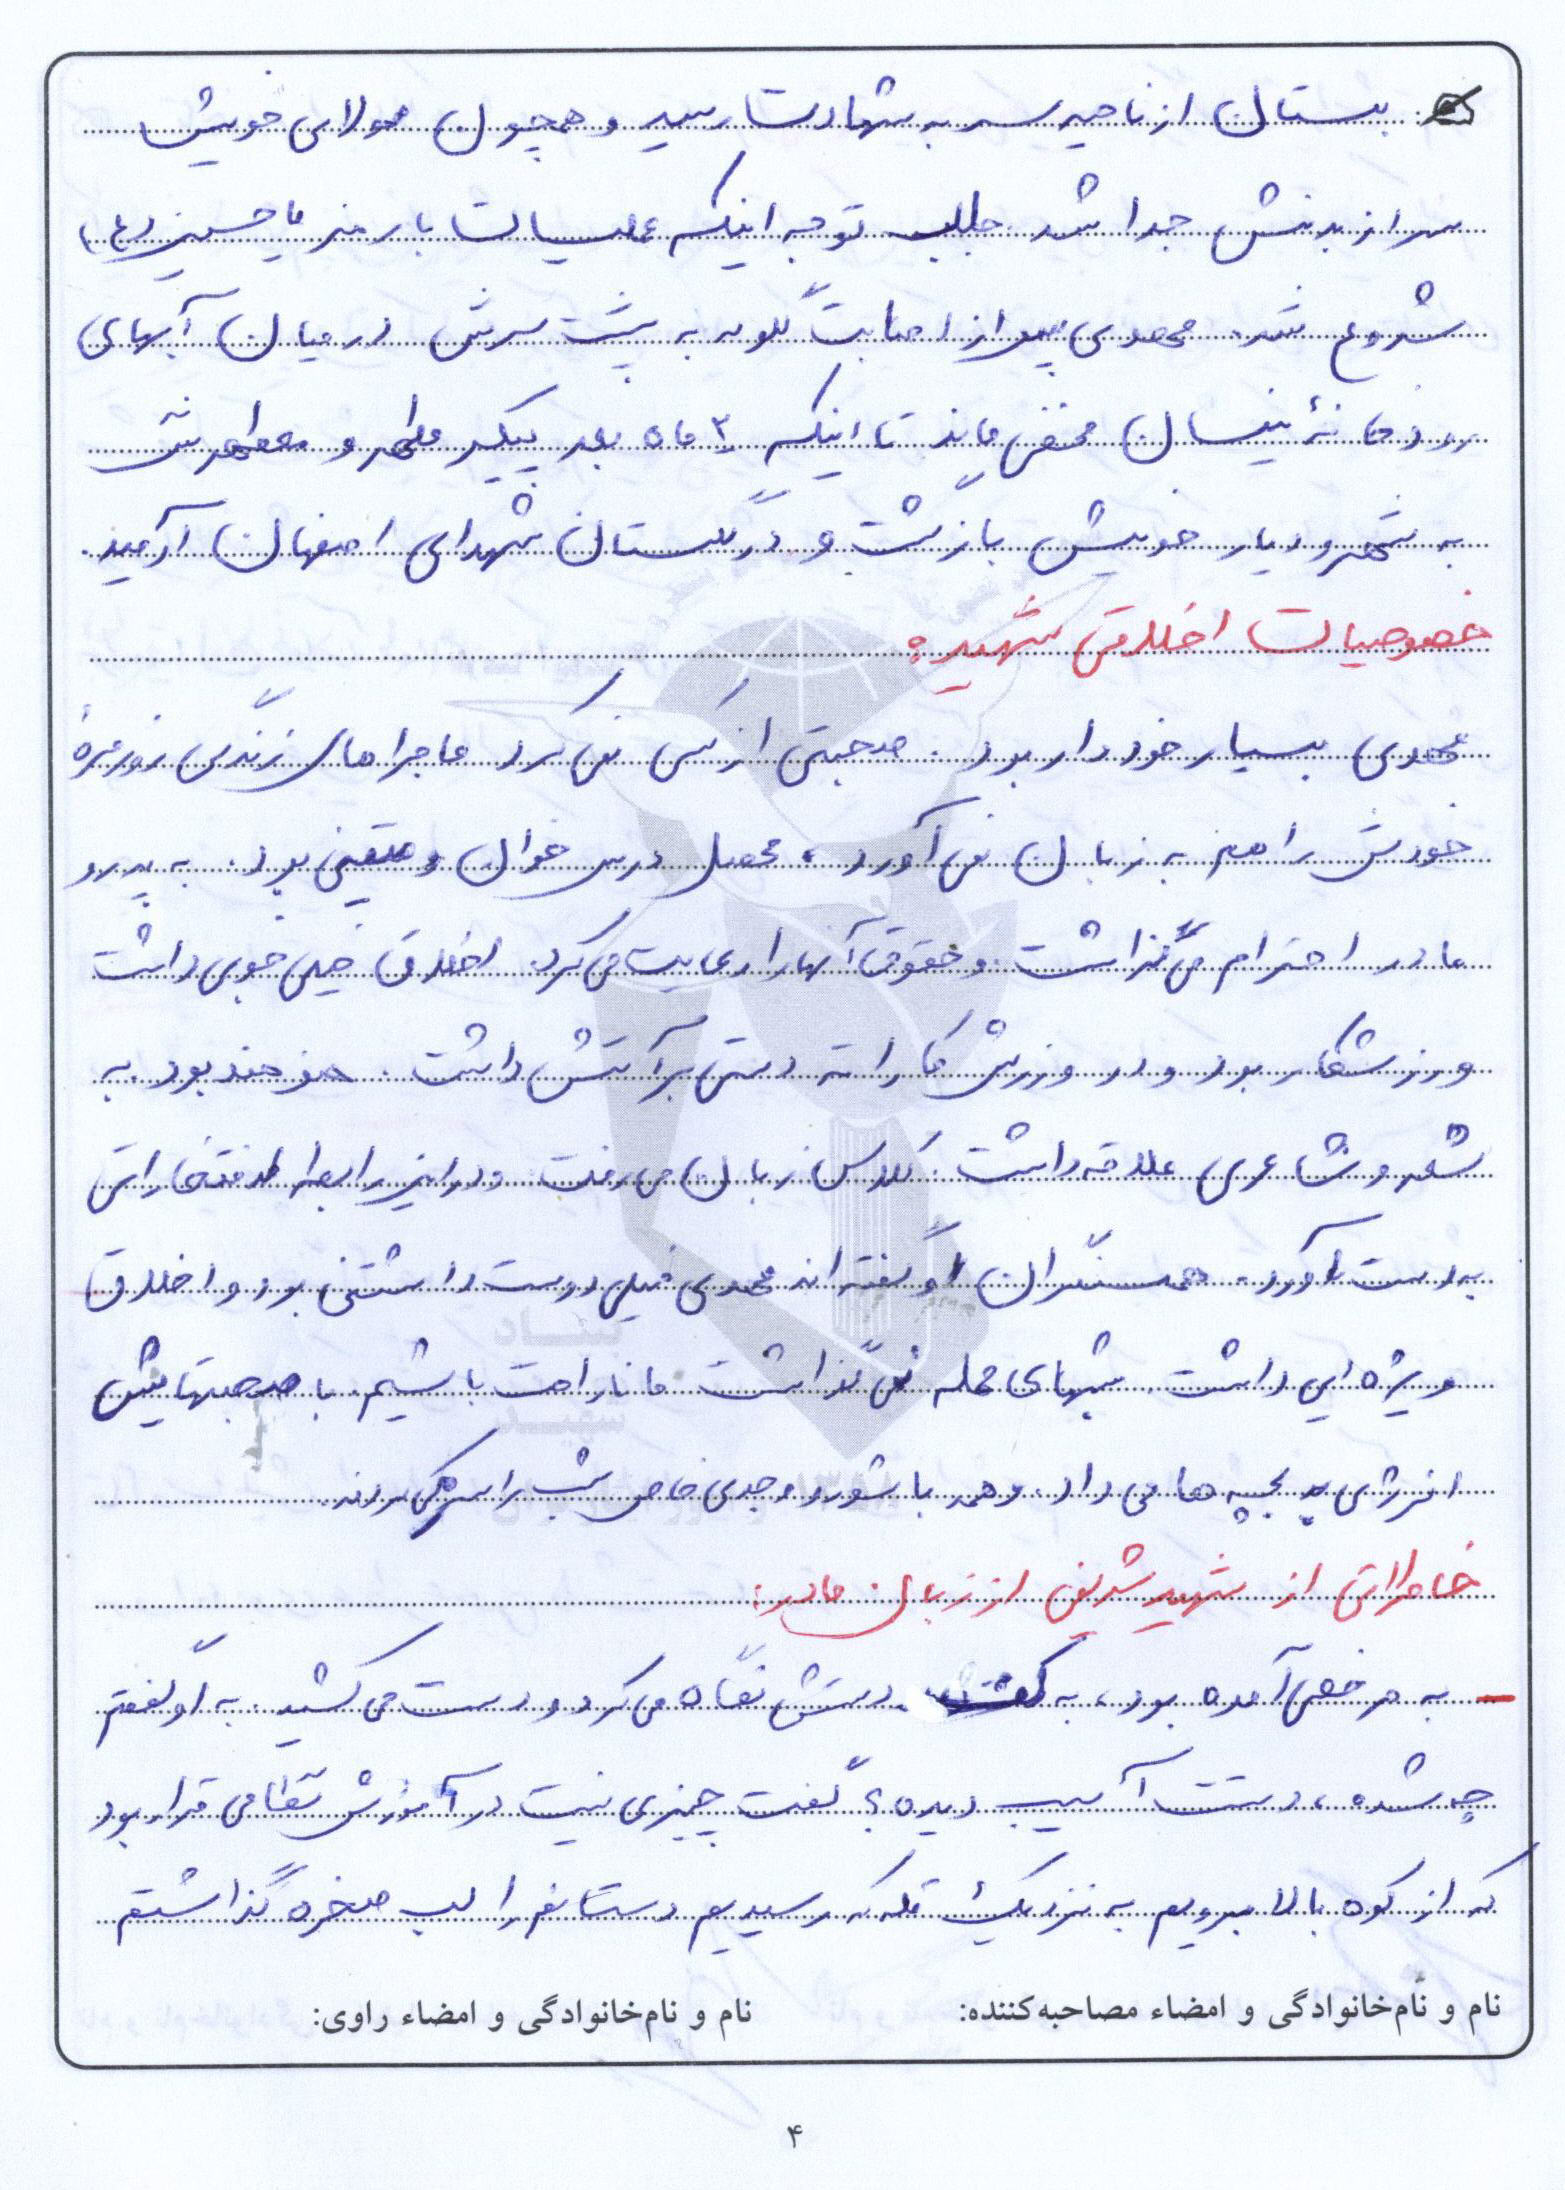 بستان از ناحیه سر به شهادت رسید و همچون مولای خویش
سر از بدنش جدا شد. جالب توجه اینکه عملیات با رمز یا حسین (ع)
شروع شد. مهدی پس از اصابت گلوله به پشت سرش در میان آبهای
رودخانهٔ نیسان مخفی ماند تا اینکه ۳ ماه بعد پیکر مطهر و معطرش
به شهر و دیار خویش بازگشت و در گلستان شهدای اصفهان آرمید.
خصوصیات اخلاقی شهید:
مهدی بسیار خوددار بود. صحبتی از کسی نمی کرد ماجراهای زندگی روزمرهٔ
خودش را هم به زبان نمی آورد، محصل درس خوان و متینی بود. به پدر و
مادر احترام می گذاشت و حقوق آنها را رعایت می کرد. اخلاق خیلی خوبی داشت
ورزشکار بود و در ورزش کاراته دستی بر آتش داشت. هنرمند بود به
شعر و شاعری علاقه داشت. کلاس زبان می رفت و در این رابطه افتخاراتی
به دست آورد. همسنگران او گفته اند مهدی خیلی دوست داشتنی بود و اخلاق
ویژه ایی داشت. شبهای حمله نمی گذاشت ما ناراحت باشیم. با صحبتهایش
انرژی به بچه ها می داد. و همه با شور و وجدی خاص شب را سر می کردند.
خاطراتی از شهید شریفی از زبان مادر:
– به مرخصی آمده بود، به کف دستش نگاه می کرد و دست می کشید. به او گفتم
چه شده، دستت آسیب دیده؟ گفت چیزی نیست در آموزش نظامی قرار بود
که از کوه بالا برویم به نزدیک قله که رسیدیم دستانم را لب صخره گذاشتم
نام و نام‌خانوادگی و امضاء مصاحبه‌کننده: نام و نام‌خانوادگی و امضاء راوی:
۴